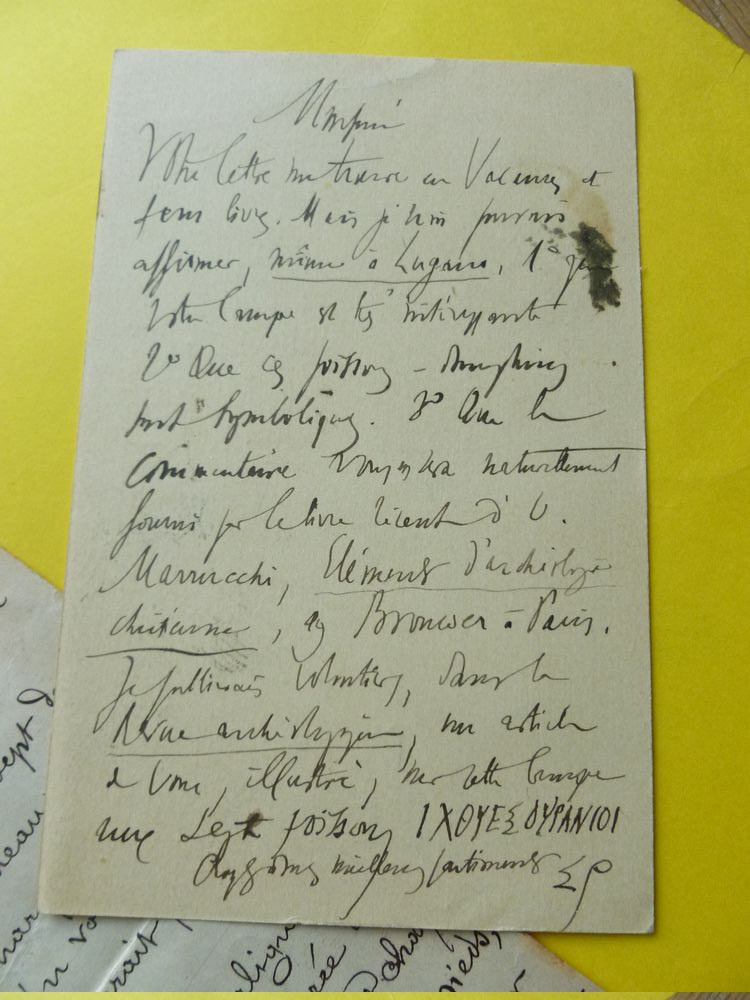 Monsieur
Votre lettre me trouve en Vacances et
sans livres. Mais je puis pourtant
affirmer, même à Lugano, 1º que
votre lampe est très intéressante
2º Que ces poissons - dauphins
sont symboliques. 3º Que le
Commentaire vous en sera naturellement
fourni par le livre récent d' O.
Marrucchi, Eléments d'archéologie
chrétienne, chez Brouwer à Paris.
Je publierais volontiers, dans la
Revue archéologique, un article
de Vous, illustré, sur cette lampe
aux Sept poissons ΙΧΘΥΕΣ ΟΥΡΑΝΙΟΙ
sentiments SR
sept